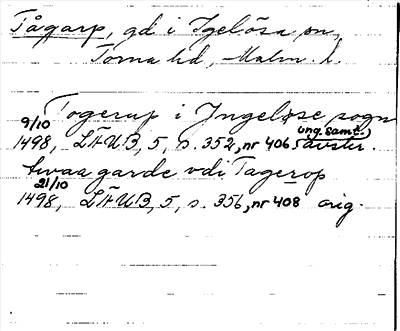 Tågarp, gd i Igelösa sn,
Torna hd, Malm. l.
Togerup i Jngeløse sogn
9/10 ung. samt.)
1498, LÄUB, 5, s. 352, nr 406 (avskr.
twaa garde vdi Tagerop
21/10
1498, LÄUB, 5, s. 356, nr 408 orig.